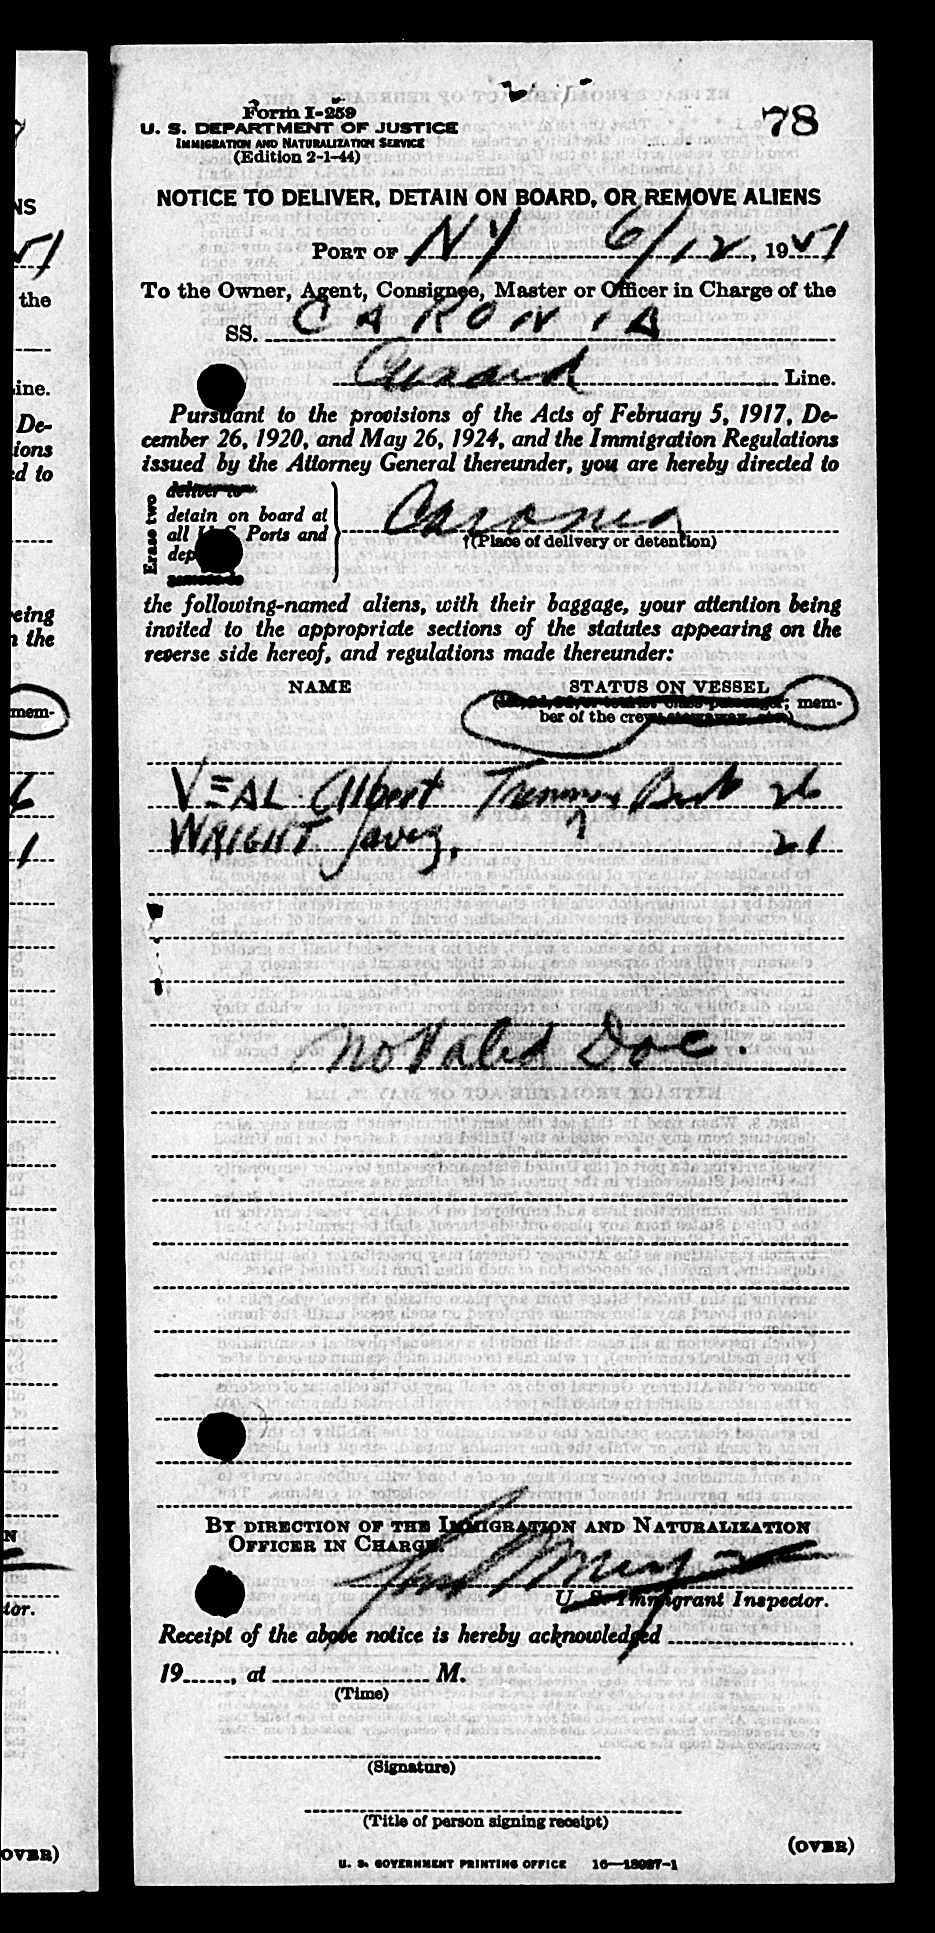 Form I-259
78
U. S. DEPARTMENT OF JUSTICE
IMMIGRATION AND NATURALIZATION SERVICE
(Edition 2-1-44)
NOTICE TO DELIVER, DETAIN ON BOARD, OR REMOVE ALIENS
PORT OF NY 6/12, 1951
To the Owner, Agent, Consignee, Master or Officer in Charge of the
SS. CARONIA
Cunard Line.
Pursuant to the provisions of the Acts of February 5, 1917, De-
cember 26, 1920, and May 26, 1924, and the Immigration Regulations
issued by the Attorney General thereunder, you are hereby directed to
Erase two
deliver to
detain on board at
all U. S. Ports and
dep
Caronia
†(Place of delivery or detention)
the following-named aliens, with their baggage, your attention being
invited to the appropriate sections of the statutes appearing on the
reverse side hereof, and regulations made thereunder:
NAME STATUS ON VESSEL
mem-
ber of the crew
VEAL Albert Brit 26
WRIGHT 21
No Valid Doc.
BY DIRECTION OF THE IMMIGRATION AND NATURALIZATION
OFFICER IN CHARGE.
U. S. Immigrant Inspector.
Receipt of the above notice is hereby acknowledged
19, at M.
(Time)
(Signature)
(Title of person signing receipt)
(OVER)
U. S. GOVERNMENT PRINTING OFFICE 16—13087-1
NS
51
the
ine.
De-
ions
ed to
eing
n the
mem-
6
1
N
tor.
OVER)